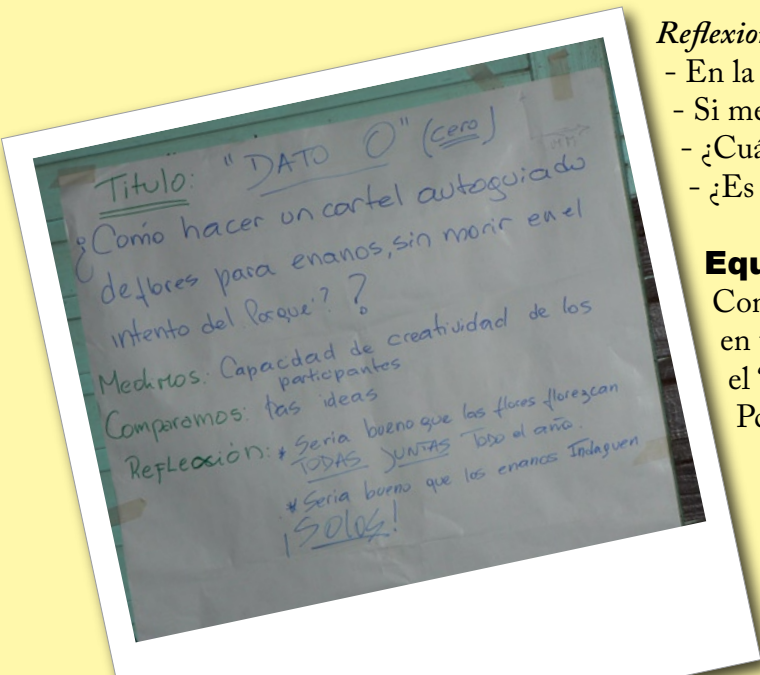 Titulo: "DATO O" (cero)
¿Como hacer un cartel autoguiado
de flores para enanos, sin morir en el
intento del Porque? ?
Medimos: Capacidad de creatividad de los
participantes
Comparamos: las ideas
Reflexión: * Seria bueno que las flores florezcan
TODAS JUNTAS TODO el año.
* Seria bueno que los enanos Indaguen
¡SOLOS!
Reflexion
- En la
- Si me
- ¿Cuá
- ¿Es
Equ
Con
en
el "
Po